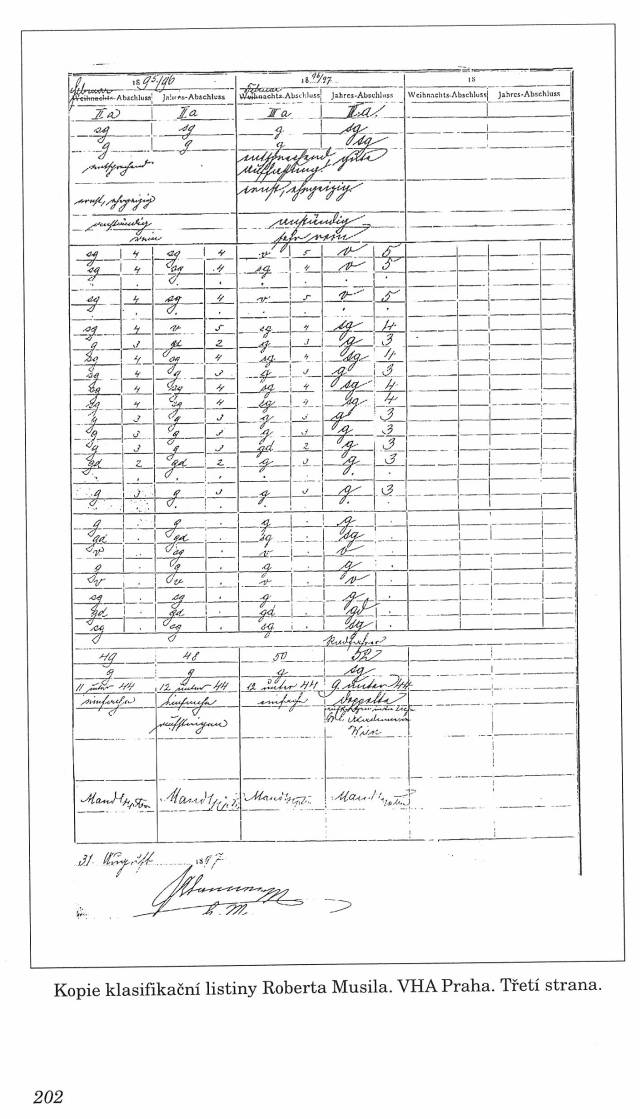 18 95/96 18 96/97 18
Februar Februar
Weihnachts-Abschluss Jahres-Abschluss Weihnachts-Abschluss Jahres-Abschluss Weihnachts-Abschluss Jahres-Abschluss
II. a II. a III a III. a.
sg sg g sg
g g g sg
entsprechend entsprechend gute
ernst, ehrgeizig
ernst, ehrgeizig
anständig anständig
rein sehr rein
sg 4 sg 4 v 5 v 5
sg 4 sg 4 sg 4 v 5
sg 4 sg 4 v 5 v 5
sg 4 v 5 sg 4 sg 4
g 3 gd 2 g 3 g 3
sg 4 sg 4 sg 4 sg 4
sg 4 g 3 g 3 g 3
sg 4 sg 4 sg 4 sg 4
sg 4 sg 4 sg 4 sg 4
g 3 g 3 g 3 g 3
g 3 g 3 g 3 g 3
g 3 g 3 gd 2 g 3
gd 2 gd 2 g 3 g 3
g 3 g 3 g 3 g 3
g g g g
gd gd sg sg
v sg v v
g g g g
v v v v
sg sg g g
gd gd gd gd
sg sg sg sg
Radfahren
49 48 50 52
g g g sg
11 unter 44 12 unter 44 12 unter 44 9 unter 44
einfache einfache einfach Doppelte
aufsteigen
Wien
Mandl Mandl Mandl Mandl
31. August 1897
Kopie klasifikační listiny Roberta Musila. VHA Praha. Třetí strana.
202